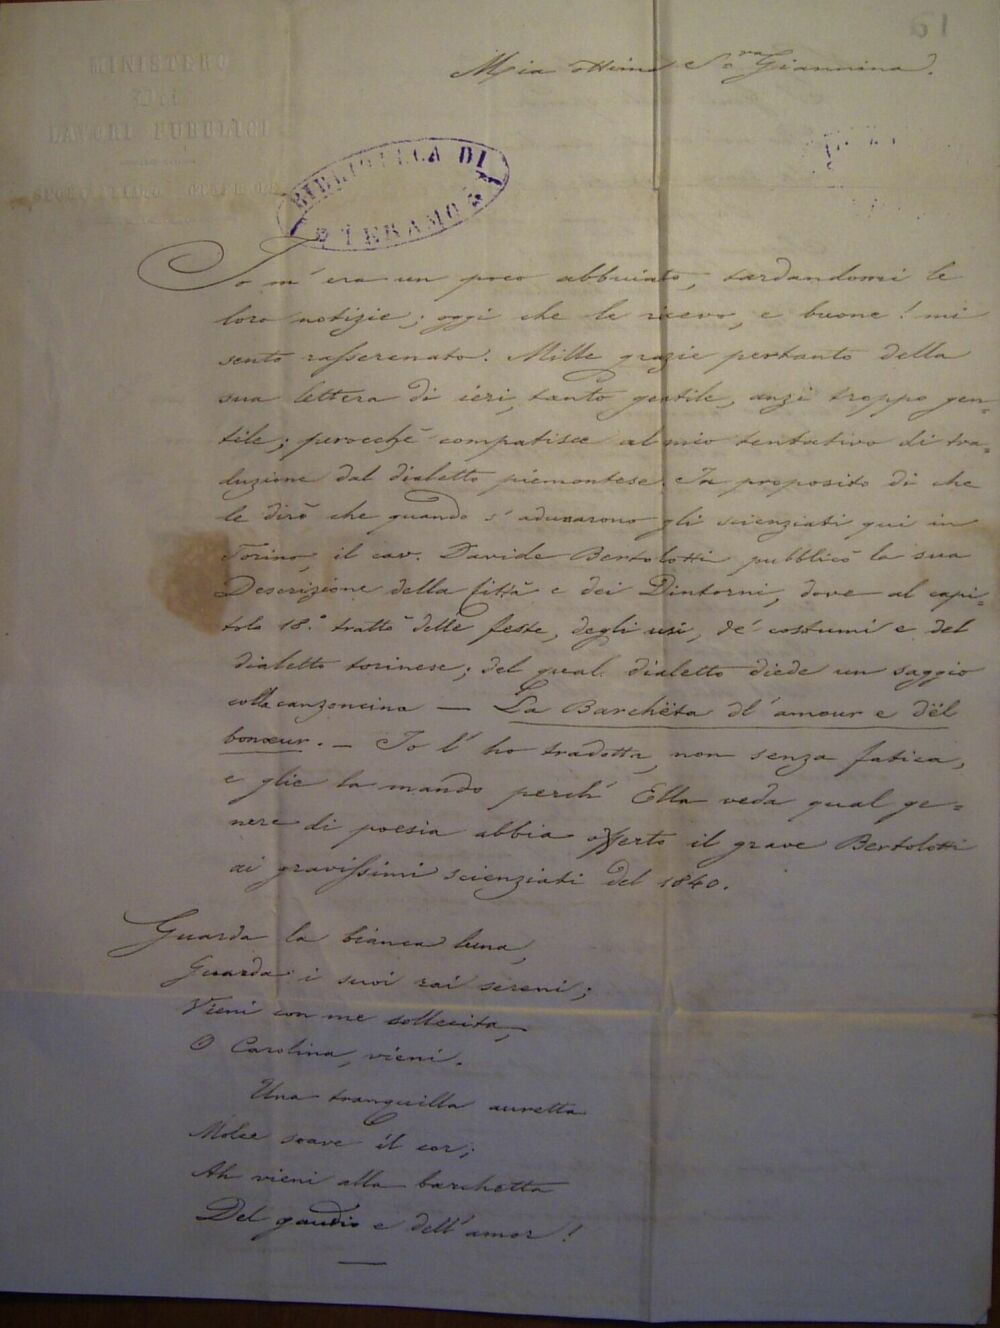 MINISTERO
DEI
LAVORI PUBBLICI
Mia ottima Sra Giannina.
BIBLIOTECA DI
TERAMO
Io m'era un poco abbuiato, tardandomi le
loro notizie; oggi che le ricevo, e buone! mi
sento rasserenato. Mille grazie pertanto della
sua lettera di ieri, tanto gentile, anzi troppo gen=
tile; perocchè compatisce al mio tentativo di tra=
duzione dal dialetto piemontese. In proposito di che
le dirò che quando s'adunarono gli scienziati qui in
Torino, il cav. Davide Bertolotti pubblicò la sua
Descrizione della Città e dei Dintorni, dove al capi=
tolo 18.° trattò delle feste, degli usi, de' costumi e del
dialetto torinese; del qual dialetto diede un saggio
colla canzoncina — La Barchëta dl'amour e dël
bonœur. — Io l'ho tradotta, non senza fatica,
e glie la mando perchè Ella veda qual ge=
nere di poesia abbia offerto il grave Bertolotti
ai gravissimi scienziati del 1840.
Guarda la bianca luna,
Guarda i suoi rai sereni;
Vieni con me sollecita,
O Carolina, vieni.
Una tranquilla auretta
Molce soave il cor;
Ah vieni alla barchetta
Del gaudio e dell'amor!